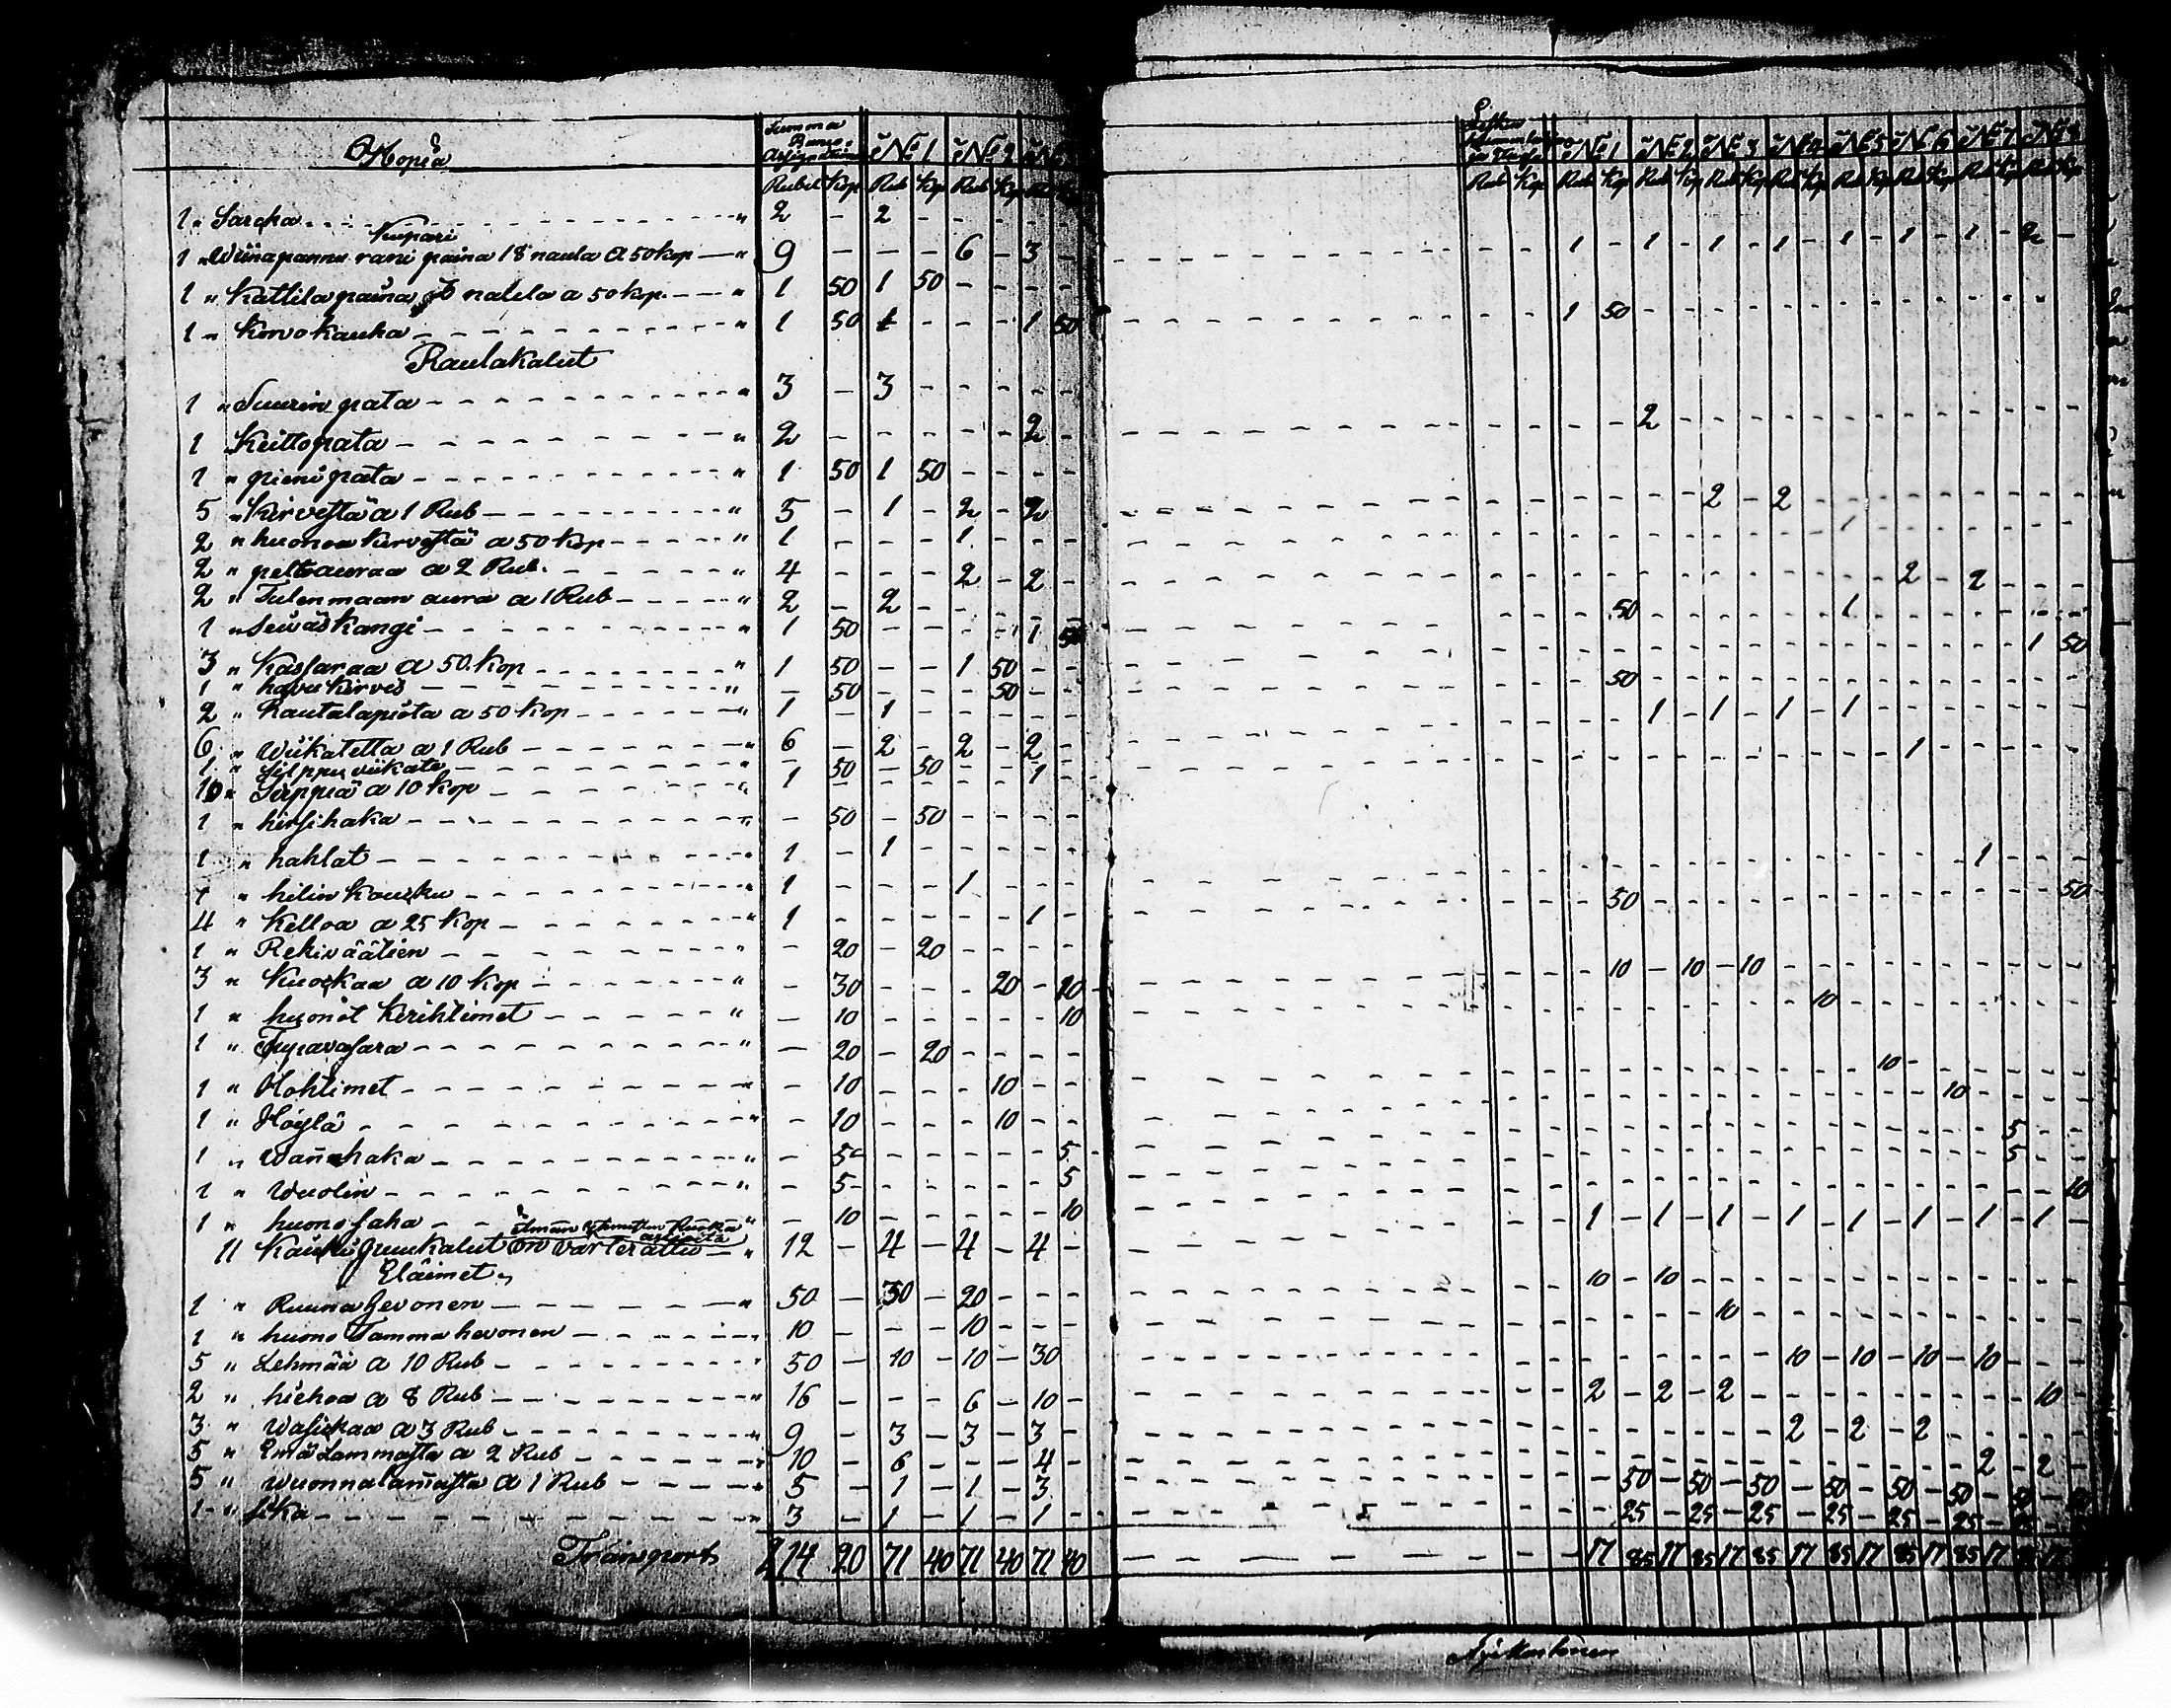 Hopia
Summa Banco Assignationi № 1 № 2 №
Rubel Kop Rub Kop Rub Kop Rub
1 " Sarcka " 2 - 2 - - - - -
Kupari
1 " Wiinapannu rani paina 18 naula a 50 kop " 9 - - - 6 - 3 -
1 " Kattila paina naula a 50 kop " 1 50 1 50 - - - -
1 " Korvokauha " 1 50 - - - 1 50
Raulakalut
1 " Suurin pata " 3 - 3 - - - - -
1 Keittopata " 2 - - - - - 2 -
1 " pieni pata " 1 50 1 50 - - - -
5 " Kirvestä a 1 Rub " 5 - 1 - 2 - 2
2 " huonoa kirvestä a 50 kop " 1 - - - 1 - - -
2 " peltoauraa a 2 Rub. " 4 - - - 2 - 2 -
2 " Tulenmaan aura a 1 Rub " 2 - 2 - - - - -
1 " Seiväs Kangi " 1 50 - - - - 1 50
3 " Kassaraa a 50 kop " 1 50 - - 1 50 - -
1 " havukirves " - 50 - - - 50 - -
2 " Rautalapiota a 50 kop " 1 - 1 - - - - -
6 " Wiikatetta a 1 Rub " 6 - 2 - 2 - 2 -
1 " Silppu viikate " - 50 - 50 - - - -
10 " Sirppiä a 10 kop " 1 - - - - - 1 -
1 " hirsihaka " - 50 - 50 - - - -
1 " hahlat " 1 - 1 - - - - -
1 " hilin koucku " 1 - - - 1 - - -
4 " Kelloa a 25 kop " 1 - - - - - 1 -
1 " Rekiväätien " - 20 - 20 - - - -
3 " Kuockaa a 10 kop " - 30 - - - 20 - 10
1 " huonot Kerihtimet " - 10 - - - - - 10
1 " Tupavasara " - 20 - 20 - - - -
1 " Hohtimet " - 10 - - - 10 - -
1 " Höylä " - 10 - - - 10 - -
1 " Wannehaka " - 5 - - - - - 5
1 " Wuolin " - 5 - - - - - 5
1 " huono saha " - 10 - - - - - 10
ilman Ruoka astioita
11 Kaicki puukalut on värterattu " 12 - 4 - 4 - 4 -
Eläimet
1 " Ruuna hevonen " 50 - 30 - 20 - - -
1 " huono Tamma hevonen " 10 - - - 10 - - -
5 " Lehmää a 10 Rub " 50 - 10 - 10 - 30
2 " hiehoa a 8 Rub " 16 - - - 6 - 10 -
3 " Wasickaa a 3 Rub " 9 - 3 - 3 - 3 -
5 " Emä Lammasta a 2 Rub " 10 - 6 - - - 4 -
5 " wuonnalamasta a 1 Rub " 5 - 1 - 1 - 3
1 " sika " 3 - 1 - 1 - 1 -
Transport 214 20 71 40 71 40 71 40
Lesken
№ 1 № 2 № 3 № 4 № 5 № 6 № 7 № 8
Rub Kop Rub Kop Rub Kop Rub Kop Rub Kop Rub Kop Rub Kop Rub Kop Rub Kop
1 - 1 - 1 - 1 - 1 - 1 - 1 - 2 -
1 50
2
2 - 2
1
2 - 2
50 1
1 50
50
1 - 1 - 1 - 1
1
1
50 50
10 - 10 - 10
10
10
10
5
5
10
1 - 1 - 1 - 1 - 1 - 1 - 1 - 1
10 - 10
10
10 - 10 - 10 - 10
2 - 2 - 2 10
2 - 2 - 2
2 - 2
50 - 50 - 50 - 50 - 50 - 50
25 - 25 - 25 - 25 - 25 - 25
17 85 17 85 17 85 17 85 17 85 17 85 17